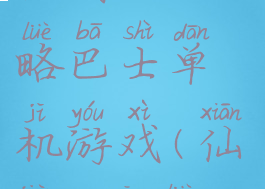 lüè bā shì dān
略巴士单
jī yóu xì xiān
机游戏(仙